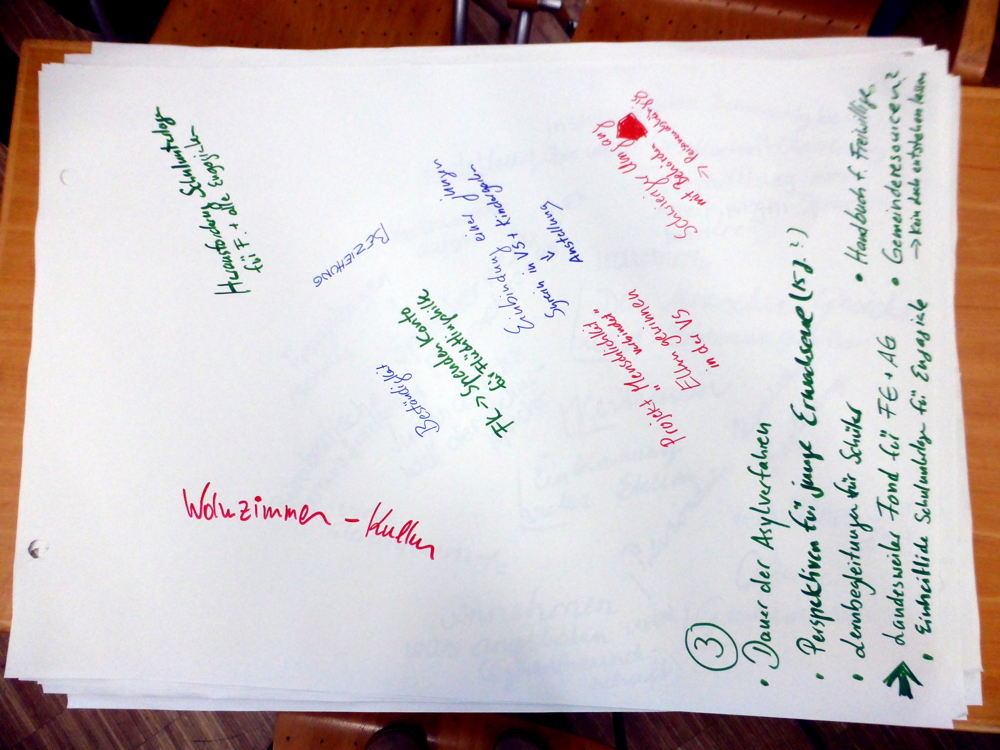 Herausforderung Schulunterlagen
für F. + alle Engagierten
BEZIEHUNG
Einbindung einer jungen
Syrerin in VS + Kindergarten
↓
Anstellung
Schwieriger Umgang
mit Behörden
→ Personenabhängig
Beständigkeit
FK → Spenden Konto
für Flüchtlingshilfe
Projekt "Menschlichkeit
verbindet"
Eltern gewinnen
in der VS
Wohnzimmer - Kultur
③
• Dauer der Asylverfahren
• Perspektiven für junge Erwachsene (15 J. ?)
• Lernbegleitungen für Schüler
→ Landesweiter Fond für FE + AG
• Einheitliche Schulunterlagen für Engagierte
• Handbuch f. Freiwillige
• Gemeinderessourcen?
→ Kein Neid entstehen lassen